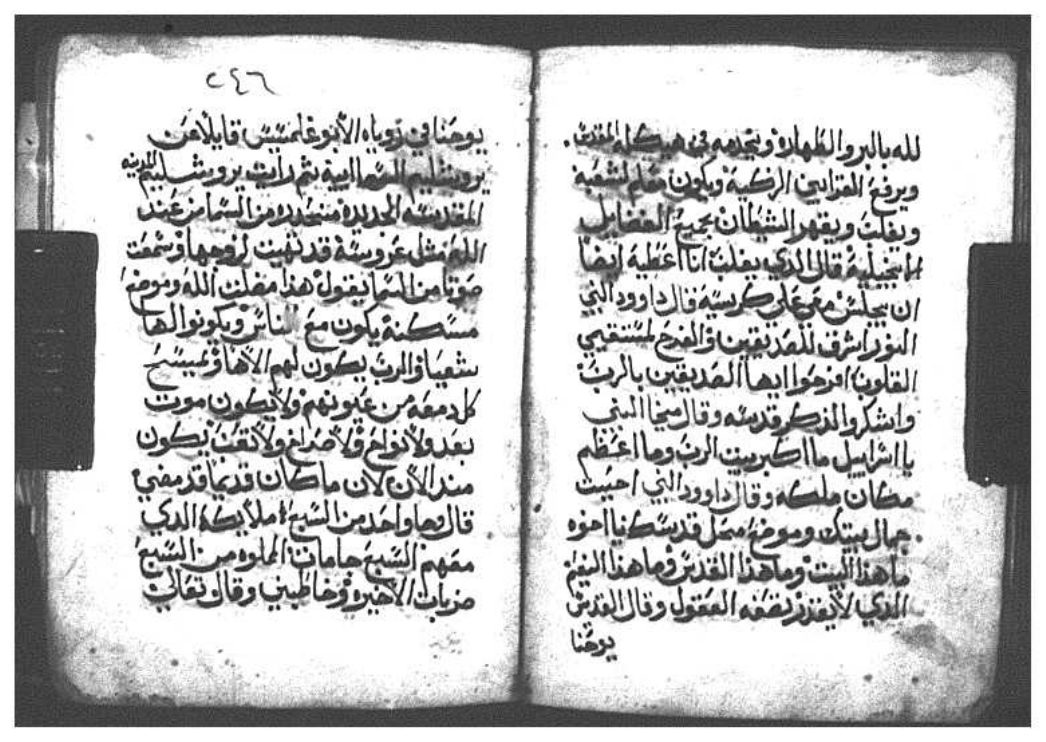 لله بالبر والطهاره ويخدمه في هيكله المقدس.
ويرفع القرابين الزكية ويكون معلم لشعبه
ويغلب ويقهر الشيطان بجميع الفضايل
الانجيلية قال الذي يغلب انا اعطيه ايضا
ان يجلس معي على كرسيه قال داوود النبي
النور اشرق للصديقين والفرح لمستقيمي
القلوب افرحوا ايها الصديقين بالرب
واشكروا لذكر قدسه وقال النبي
يا اسراييل ما اكبر بيت الرب وما اعظم
مكان ملكه وقال داوود النبي احببت
جمال بيتك وموضع محل قدسك يا اخوه
ما هذا البيت وما هذا القدس وما هذا النعيم
الذي لا يقدر تصفه العقول وقال القديس
يوحنا
٢٤٦
يوحنا في روياه الابوغلمسيس قايلا عن
يروشليم السماايية ثم رايت يروشليم المدينه
المقدسه الجديده منحدره من السما من عند
الله مثل عروسة قد تهيت لزوجها وسمعت
صوتا من السما يقول هذا مظلت الله وموضع
مسكنه يكون مع الناس ويكونوا لها
شعبا والرب يكون لهم الاها ويمسح
كل دمعه من عيونهم ولا يكون موت
بعد ولا نواح ولا صراخ ولا تعب يكون
مند الان لان ما كان قديما قد مضي
قال وجا واحد من السبعة ملايكة الدي
معهم السبع جامات المملوه من السبع
ضربات الاخيره وخاطبني وقال تعال